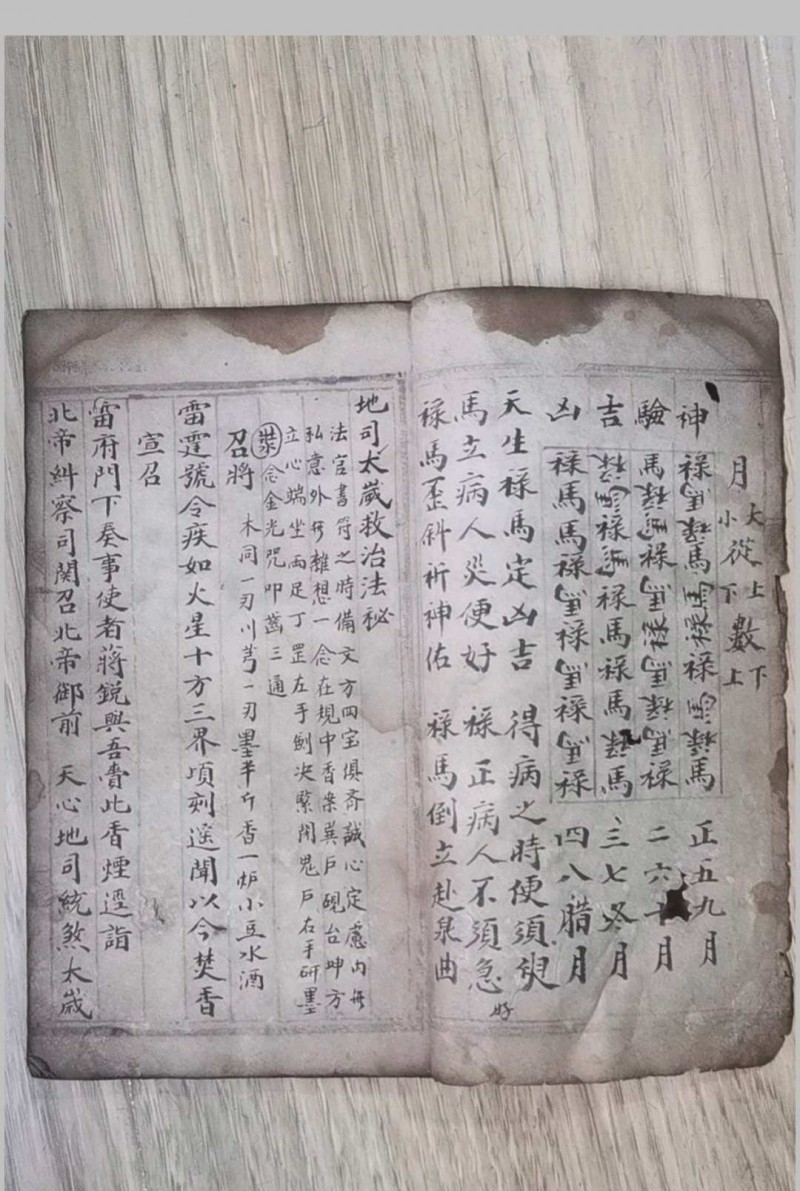 月大從上數下
小下上
神 祿馬祿馬祿祿馬祿馬 正五九月
驗 馬祿馬祿馬祿馬祿 二六十月
吉 祿馬祿馬祿馬祿馬祿馬 三七冬月
凶 祿馬馬祿馬祿馬祿馬祿 四八腊月
天生祿馬定凶吉 得病之時便須
馬立病人災便好 祿正病人不須急
祿馬歪斜祈神佑 祿馬倒立赴泉曲
好
地司太歲救治法秘
法官書符之時備文方四宝俱齐誠心定慮內無
私意外無雜想一念在規中香案巽戶硯台坤方
立心端坐兩足丁罡左手劍决緊閉鬼戶右手研墨
念金光咒叩齒三通
召將 木同一刃川芎一刃墨半斤香一炉小豆水酒
雷霆號令疾如火星十方三界頃刻遥聞以今焚香
宣召
雷府門下奏事使者蔣銳與吾賫此香煙逕詣
北帝糾察司関召北帝御前 天心地司統煞太歲